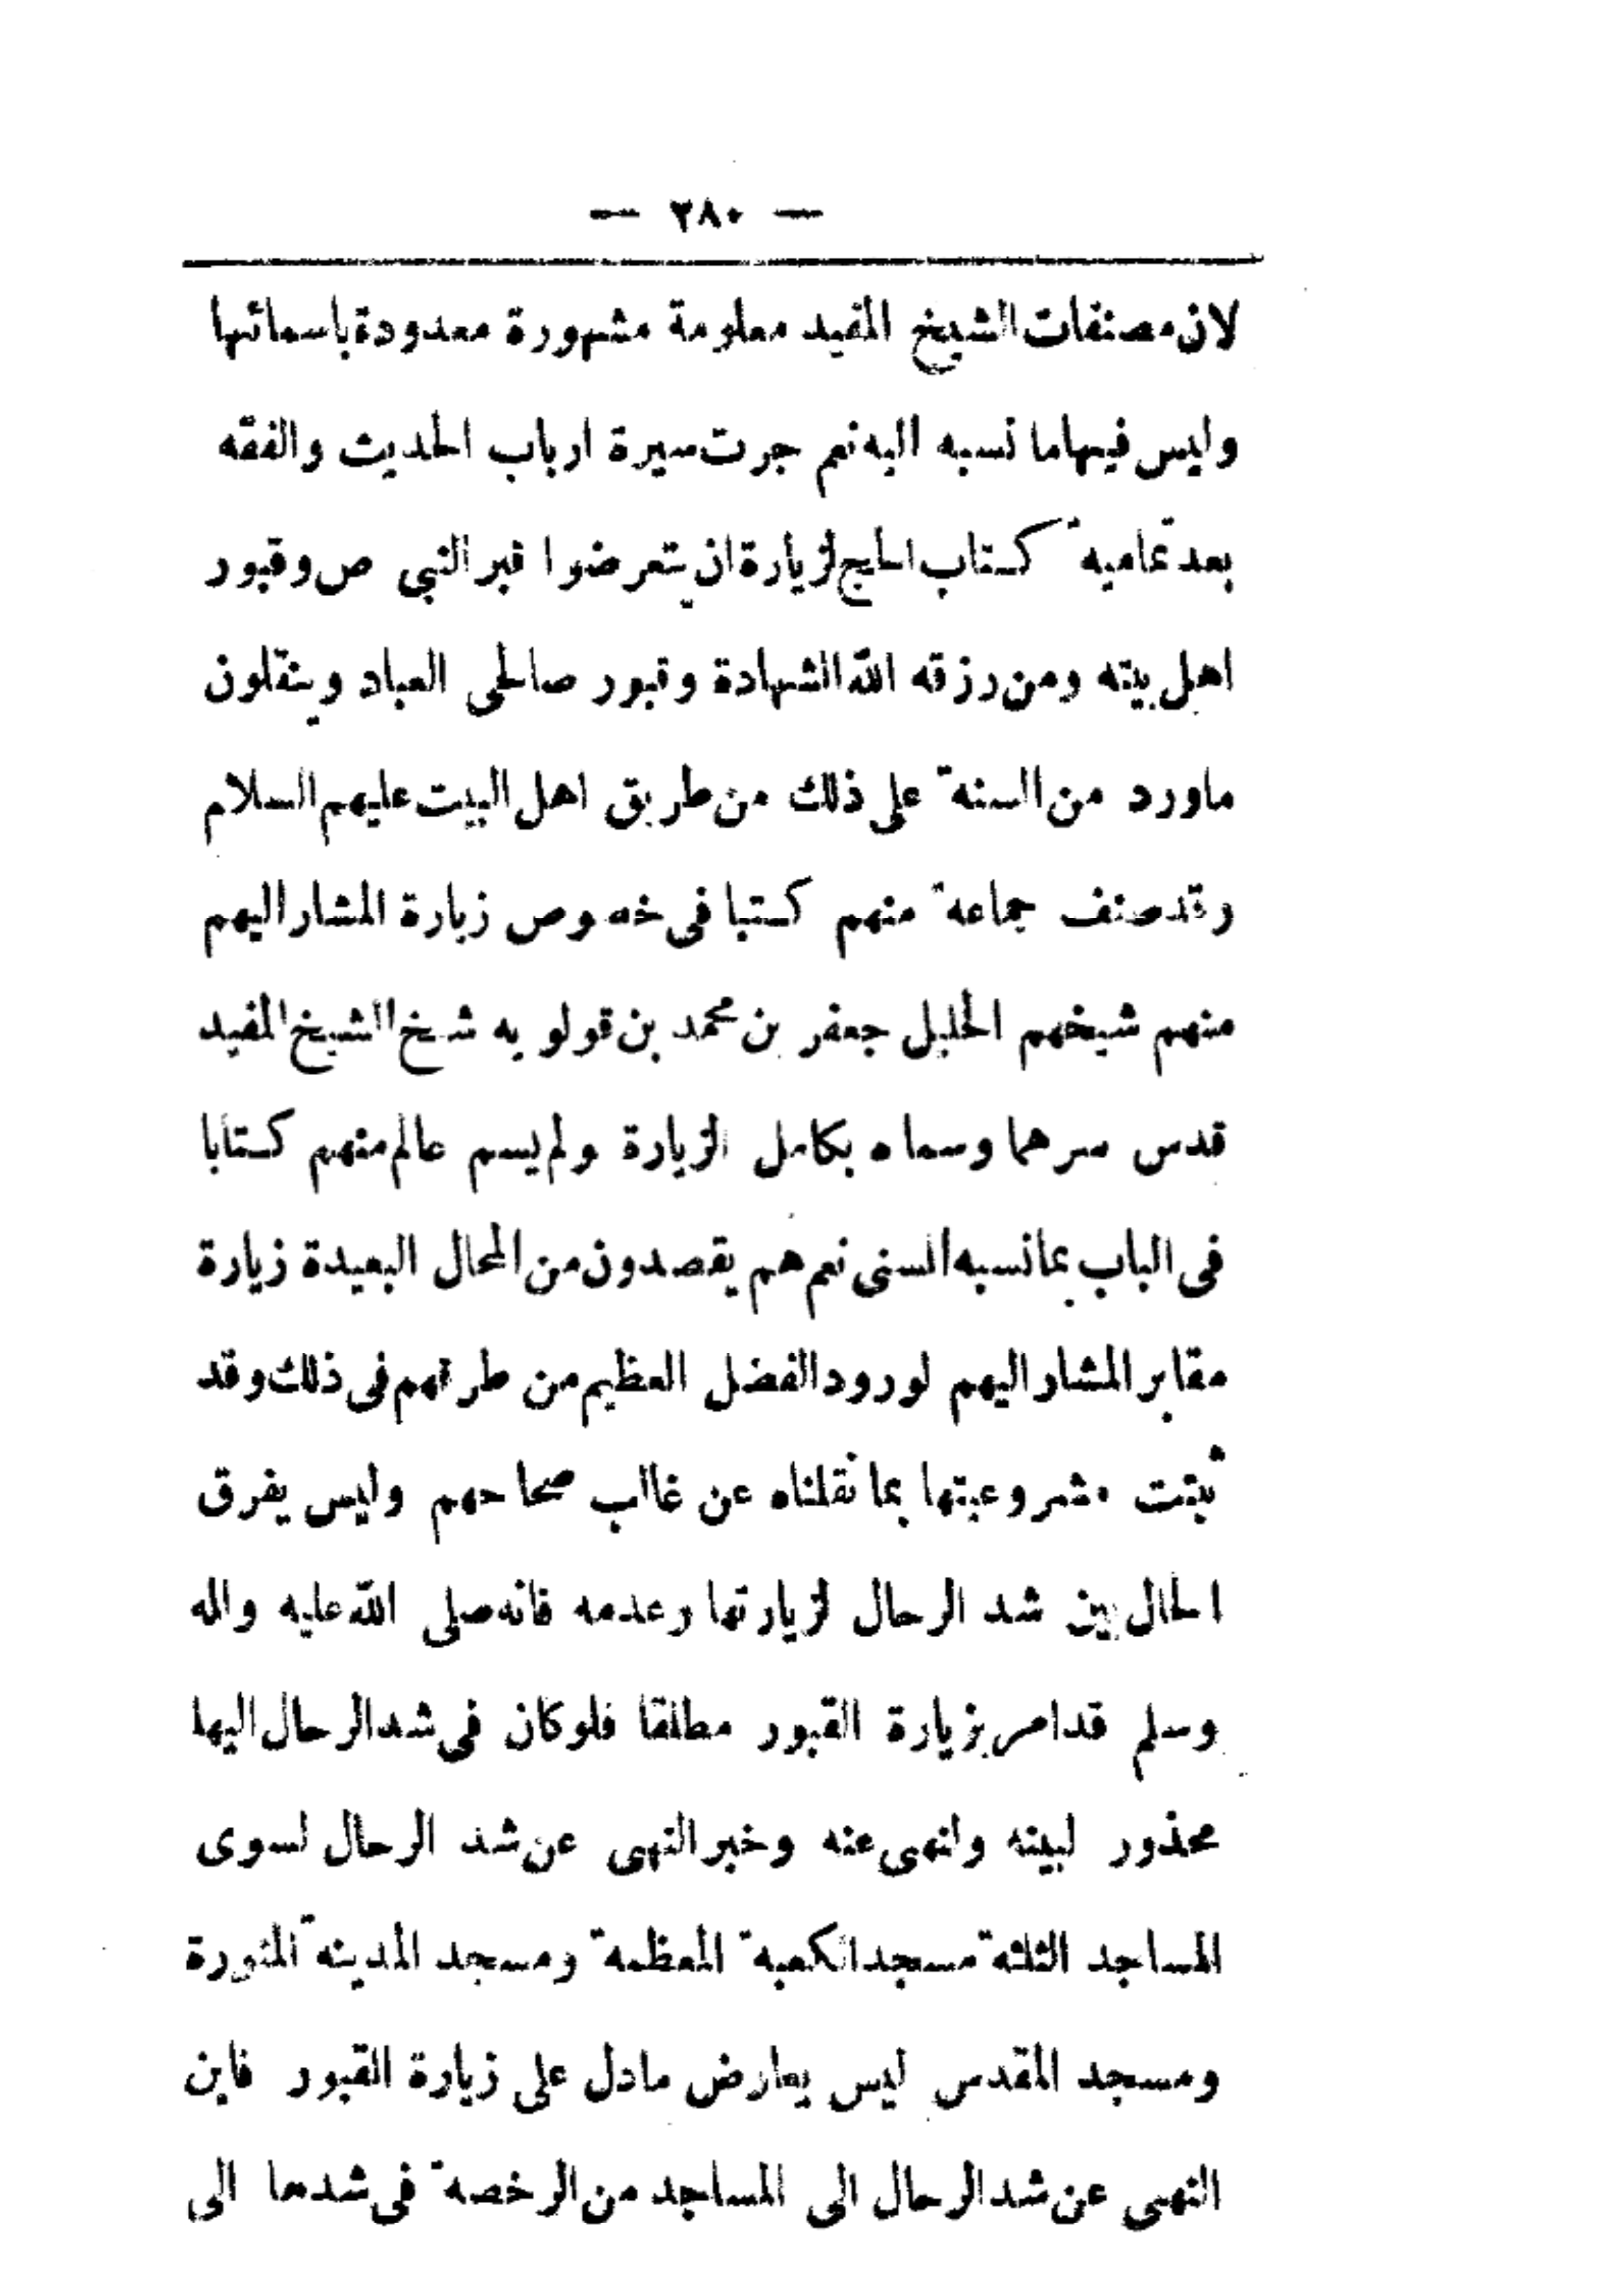 — ٢٨٠ —
لان مصنفات الشيخ المفيد معلومة مشهورة معدودة باسمائها
وليس فيها ما نسبه اليه نعم جرت سيرة ارباب الحديث والفقه
بعد تماميه كتاب الحج لزيارة ان يتعرضوا قبر النبي ص وقبور
اهل بيته ومن رزقه الله الشهادة وقبور صالحى العباد وينقلون
ماورد من السنة على ذلك من طريق اهل البيت عليهم السلام
وقد صنف جماعة منهم كتبا فى خصوص زيارة المشار اليهم
منهم شيخهم الجليل جعفر بن محمد بن قولويه شيخ الشيخ المفيد
قدس سرهما وسماه بكامل الزيارة ولم يسم عالم منهم كتابا
فى الباب بمانسبه السنى نعم هم يقصدون من المحال البعيدة زيارة
مقابر المشار اليهم لورود الفضل العظيم من طرقهم فى ذلك وقد
ثبتت مشروعيتها بما نقلناه عن غالب صحاحهم وليس يفرق
الحال بين شد الرحال لزيارتها وعدمه فانه صلى الله عليه واله
وسلم قد امر بزيارة القبور مطلقا فلوكان فى شد الرحال اليها
محذور لبينه ولنهى عنه وخبر النهى عن شد الرحال لسوى
المساجد الثلثة مسجد الكعبة المعظمة ومسجد المدينة المنورة
ومسجد المقدس ليس يعارض مادل على زيارة القبور فاين
النهى عن شد الرحال الى المساجد من الرخصة فى شدها الى